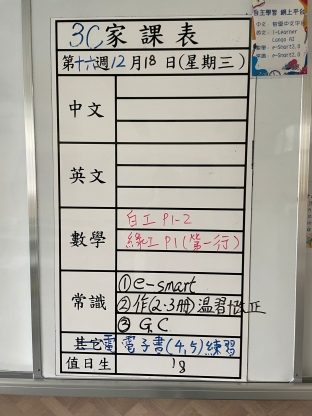 3C家課表
第十六週12月18日(星期三)
中文
英文
數學
白工 P1-2
綠工 P1(第一行)
常識
①e-smart
②作(2.3冊)溫習+改正
③G.C
其它 電子書(4,5)練習
值日生 18
自主學習 網上平台
i-Learner
e-Smart
e-Smart